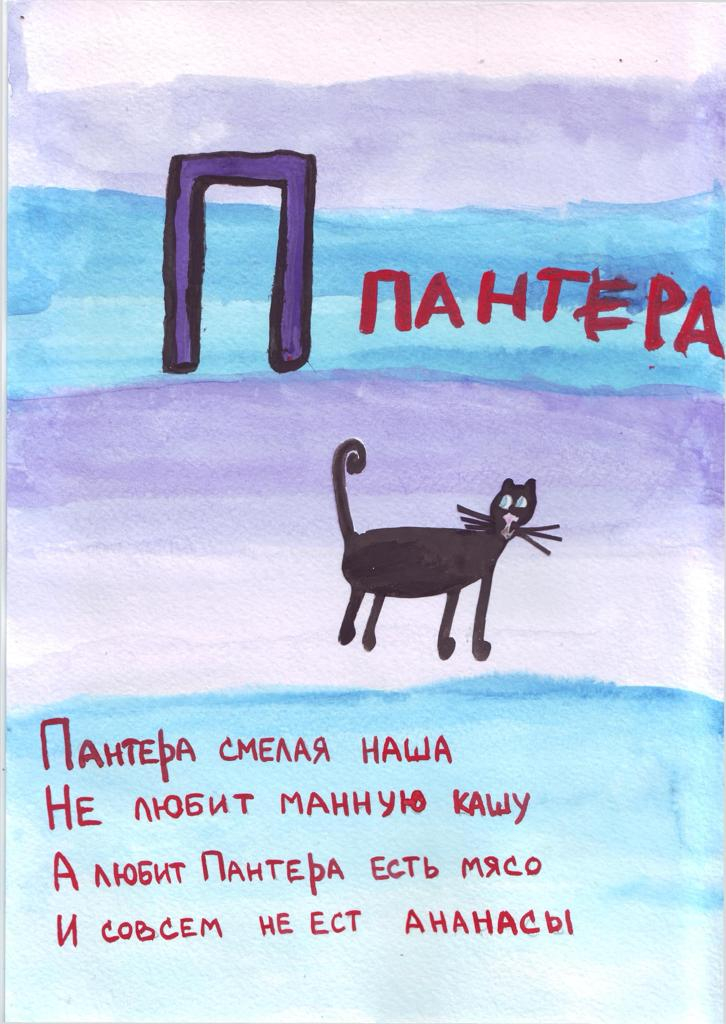 П
ПАНТЕРА
Пантера смелая наша
Не любит манную кашу
А любит Пантера есть мясо
И совсем не ест ананасы